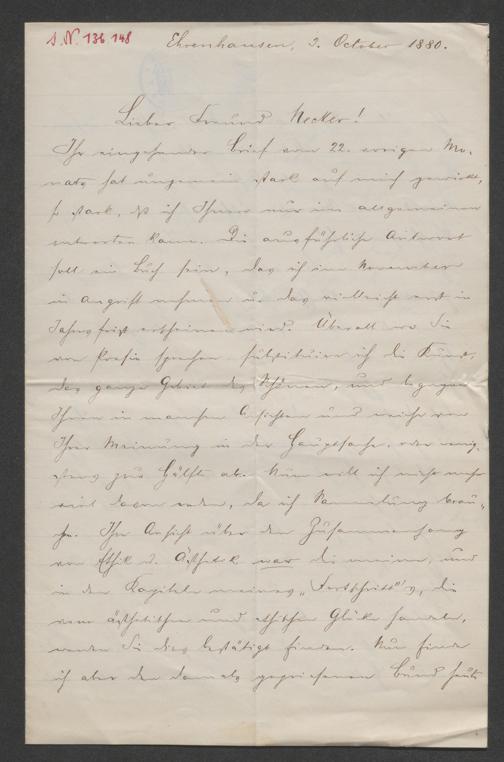 J. N. 136.148
Ehrenhausen, 3. October 1880.
Lieber Freund Necker!
Ihr eingehender Brief vom 22. vorigen Mo-
nats hat ungemein stark auf mich gewirkt,
so stark, daß ich Ihnen nur im allgemeinen
antworten kann. Die ausführliche Antwort
soll ein Buch sein, das ich im November
in Angriff nehmen u. das vielleicht erst in
Jahresfrist erscheinen wird. Überall wo Sie
von Poesie sprechen substituire ich die Kunst,
das ganze Gebiet des Schönen, und begegne
Ihnen in manchen Ansichten und weiche von
Ihrer Meinung in der Hauptsache, oder wenig-
stens zur Hälfte ab. Nun will ich nicht mehr
viel davon reden, da ich Sammlung brau-
che. Ihre Ansicht über den Zusammenhang
von Ethik u. Ästhetik war die meine, und
in den Kapiteln meines „Fortschritts", die
vom ästhetischen und ethischen Glücke handeln,
werden Sie dies bestätigt finden. Nun finde
ich aber den damals gepriesenen Bund heute